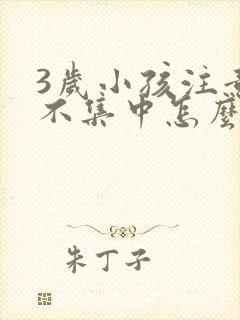 3歲小孩注
不集中怎麼
朱丁子